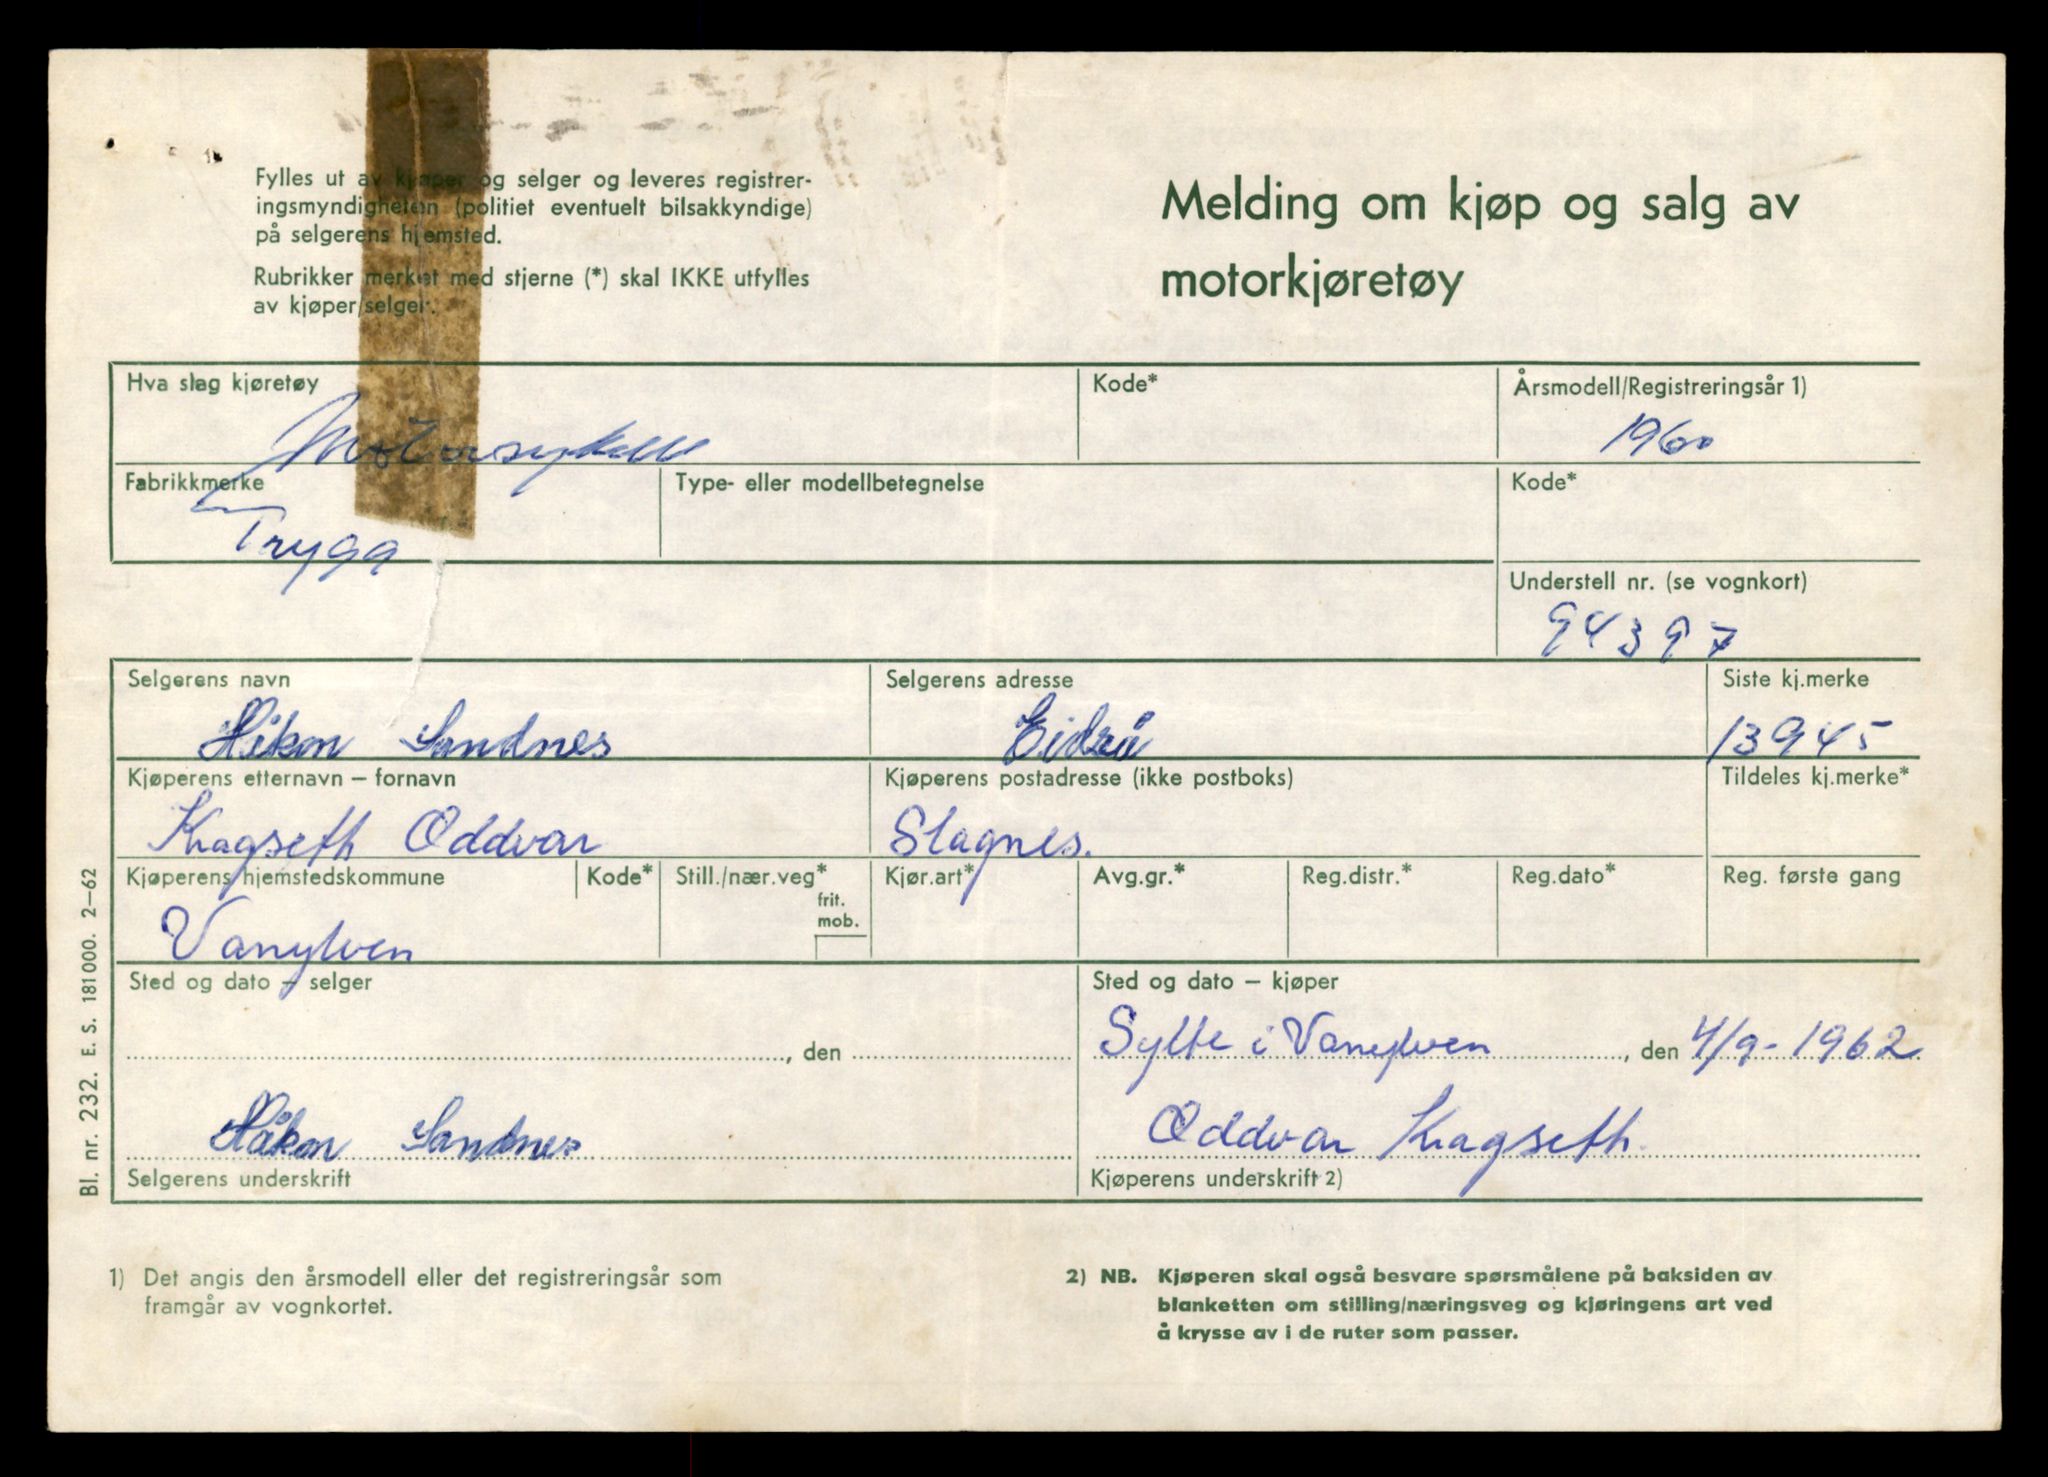 Fylles ut av kjøper og selger og leveres registrer-
ingsmyndigheten (politiet eventuelt bilsakkyndige)
på selgerens hjemsted.
Rubrikker merket med stjerne (*) skal IKKE utfylles
av kjøper/selger.
Melding om kjøp og salg av
motorkjøretøy
Hva slag kjøretøy
Motorsykkel
Kode*
Årsmodell/Registreringsår 1)
1960
Fabrikkmerke
Trygg
Type- eller modellbetegnelse
Kode*
Understell nr. (se vognkort)
94397
Selgerens navn
Håkon Sandnes
Selgerens adresse
Eidså
Siste kj.merke
13945
Kjøperens etternavn – fornavn
Kragseth Oddvar
Kjøperens postadresse (ikke postboks)
Slagnes.
Tildeles kj.merke*
Kjøperens hjemstedskommune
Vanylven
Kode*
Still./nær.veg*
frit.
mob.
Kjør.art*
Avg.gr.*
Reg.distr.*
Reg.dato*
Reg. første gang
Sted og dato – selger
, den
Håkon Sandnes
Selgerens underskrift
Sted og dato – kjøper
Sylte i Vanylven, den 4/9-1962
Oddvar Kragseth.
Kjøperens underskrift 2)
Bl. nr. 232. E. S. 181000. 2–62
1) Det angis den årsmodell eller det registreringsår som
framgår av vognkortet.
2) NB. Kjøperen skal også besvare spørsmålene på baksiden av
blanketten om stilling/næringsveg og kjøringens art ved
å krysse av i de ruter som passer.